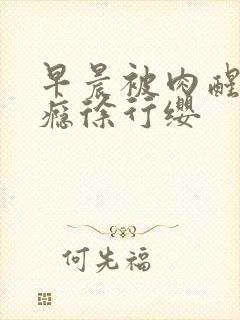 早晨被肉醒
瘾徐行缨
何先福